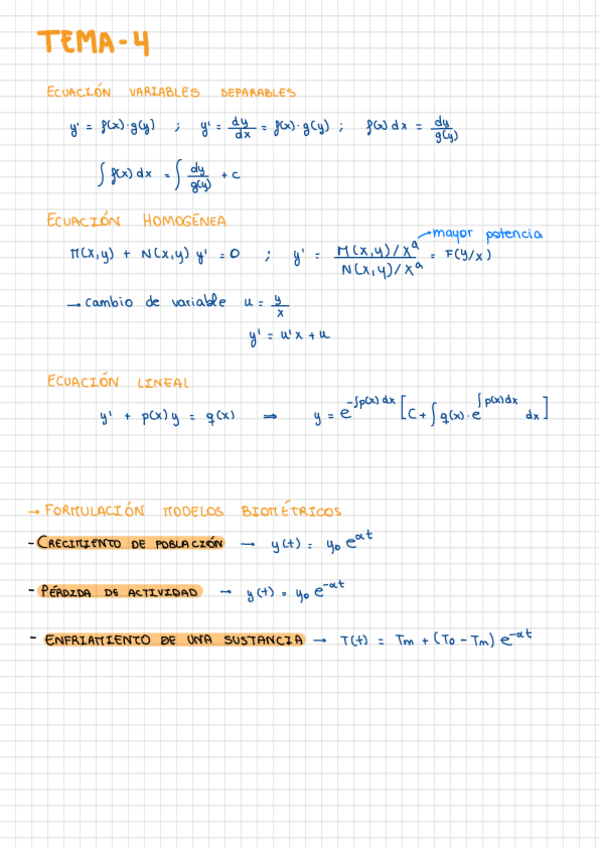 TEMA-4
ECUACIÓN VARIABLES SEPARABLES
y' = f(x)·g(y) ; y' = dy/dx = f(x)·g(y) ; f(x) dx = dy/g(y)
∫ f(x) dx = ∫ dy/g(y) + c
ECUACIÓN HOMOGÉNEA
mayor potencia
M(x,y) + N(x,y) y' = 0 ; y' = M(x,y)/x^a / N(x,y)/x^a = F(y/x)
→ cambio de variable u = y/x
y' = u'x + u
ECUACIÓN LINEAL
y' + p(x)y = q(x) ⇒ y = e^{-∫p(x)dx} [C + ∫ q(x)·e^{∫p(x)dx} dx]
→ FORMULACIÓN MODELOS BIOMÉTRICOS
- CRECIMIENTO DE POBLACIÓN → y(t) = y₀ e^{αt}
- PÉRDIDA DE ACTIVIDAD → y(t) = y₀ e^{-αt}
- ENFRIAMIENTO DE UNA SUSTANCIA → T(t) = Tm + (T₀ - Tm) e^{-αt}